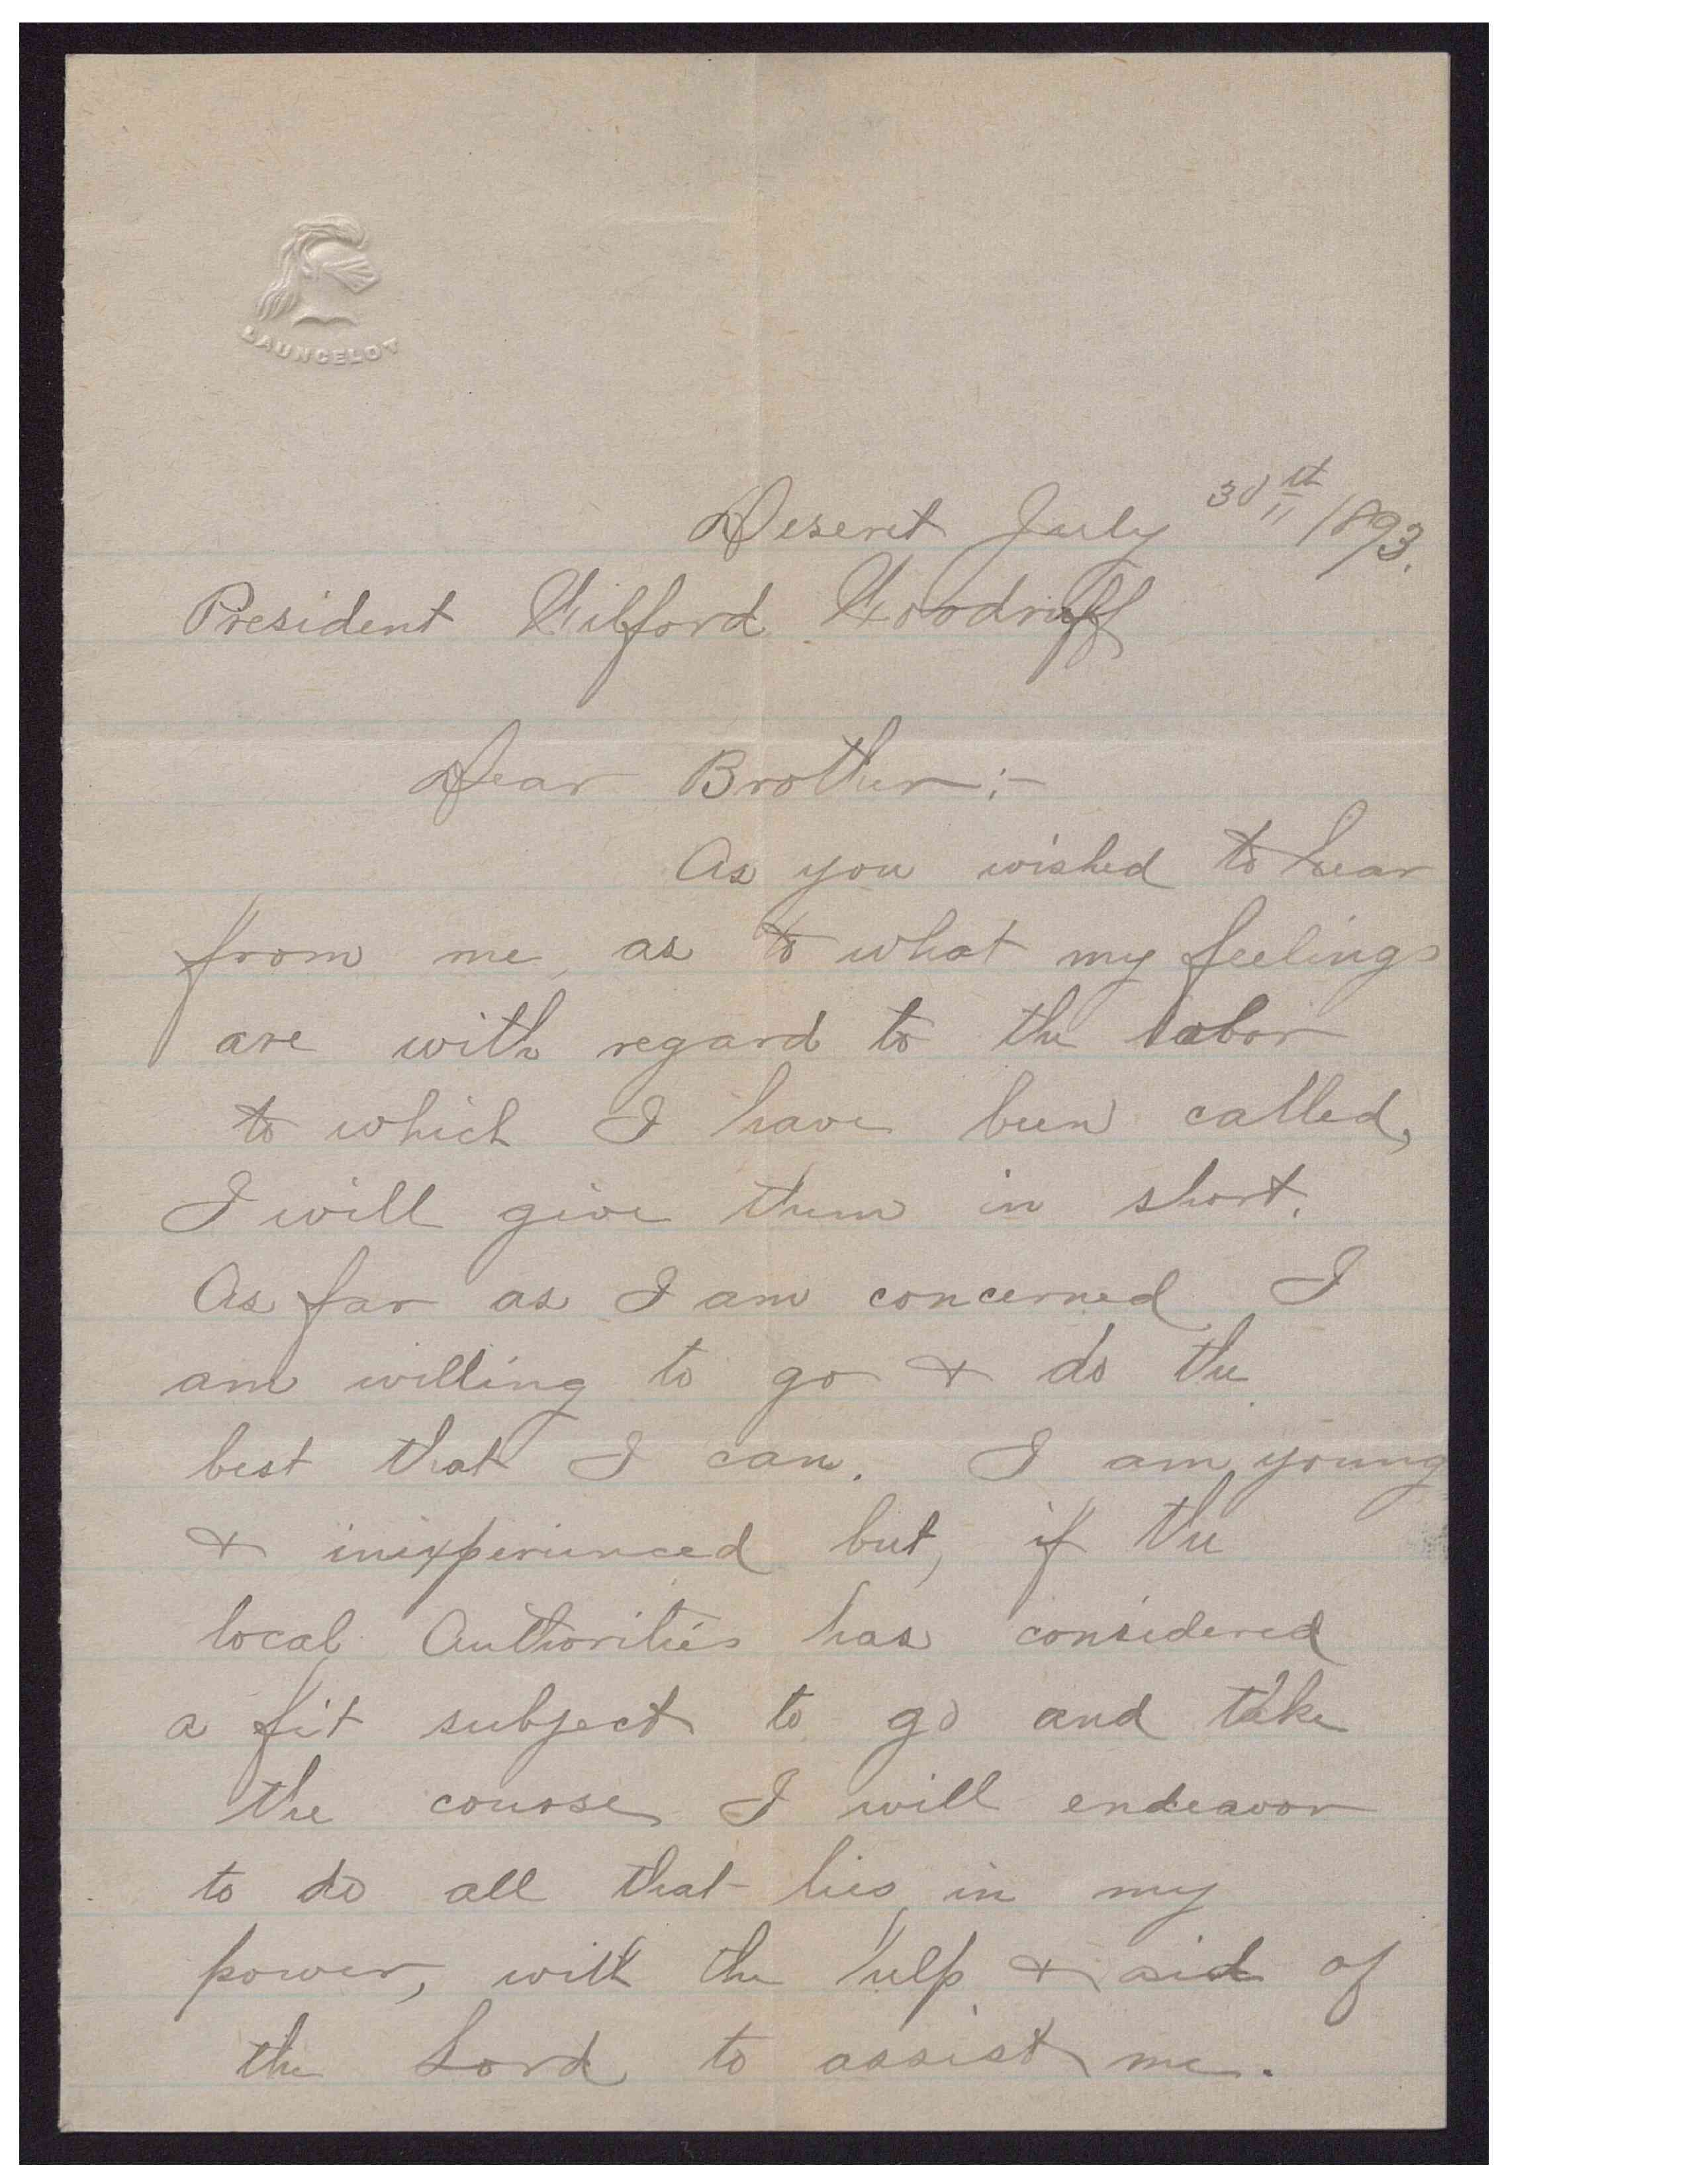 LAUNCELOT
Deseret July 30th 1893.
President Wilford Woodruff
Dear Brother:-
As you wished to hear
from me, as to what my feelings
are with regard to the labor
to which I have been called,
I will give them in short.
As far as I am concerned I
am willing to go & do the
best that I can. I am young
& inixperienced but, if the
local Authorities has considered
a fit subject to go and take
the course I will endeavor
to do all that lies in my
power, with the help & aid of
the Lord to assist me.